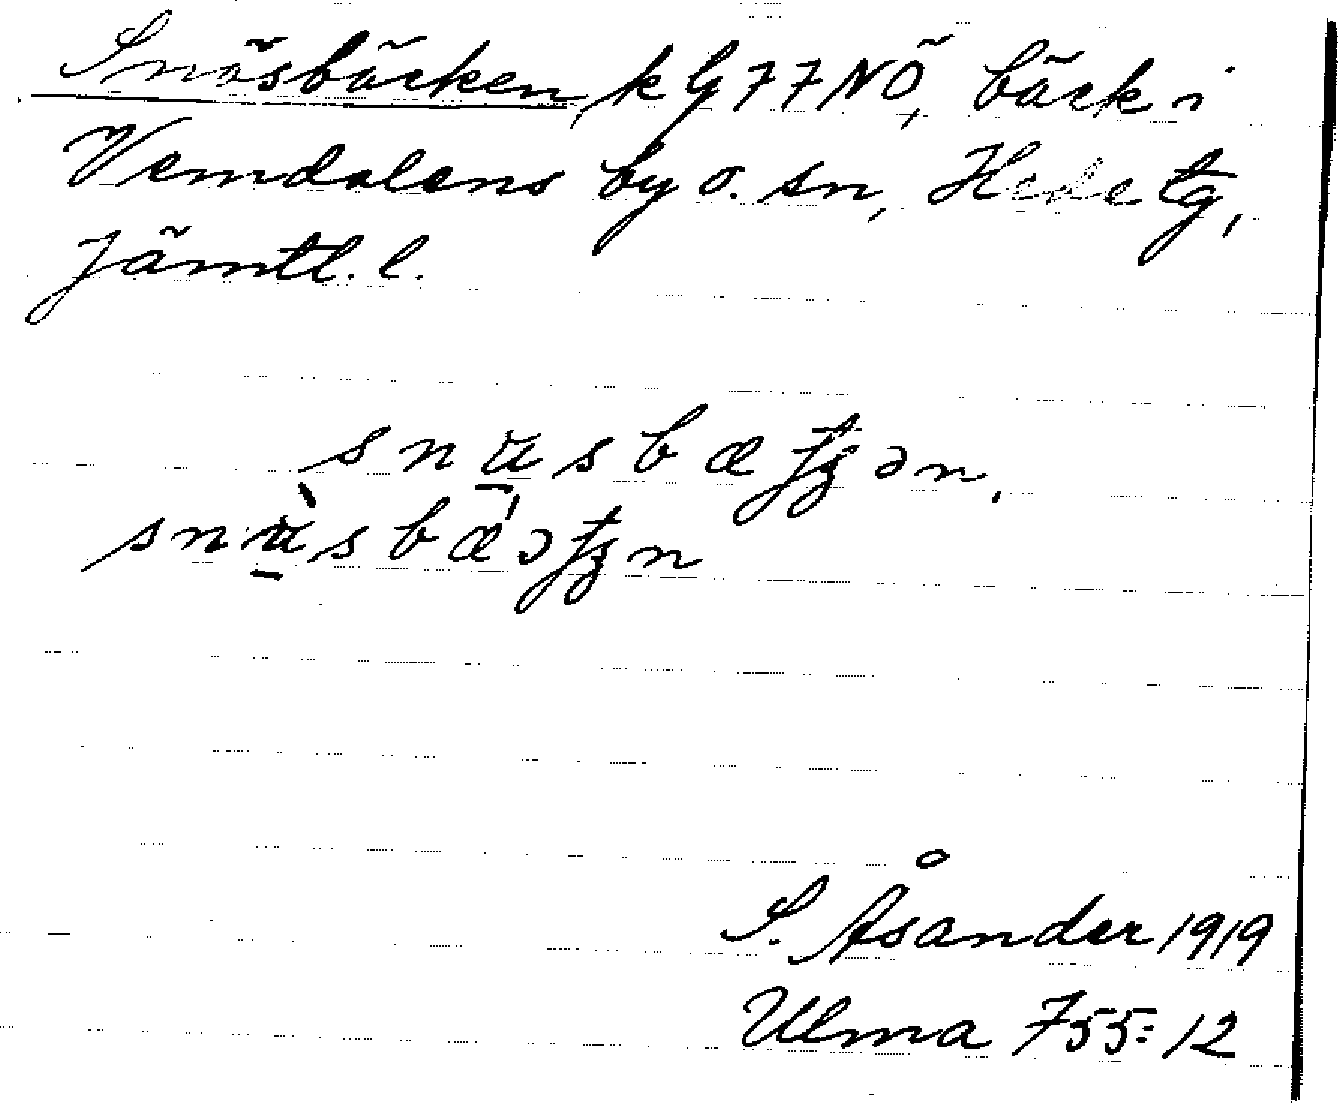 Snösbäcken, k G 77 NÖ, bäck i
Vemdalens by o. sn, Hede tg,
Jämtl. l.
S. Åsander 1919
Ulma 755:12